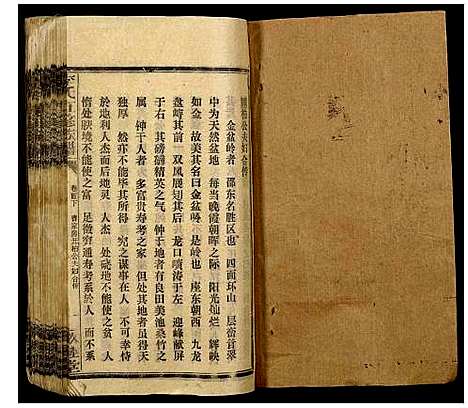 公夫妇合传
金盆岭者 邵东名胜区也 四面环山 层峦耸翠
中为天然盆地 每当晚霞朝晖之际 阳光灿烂 辉映
如金 故美其名曰金盆岭 是岭也 座东朝西 九龙
盘峙其前 双凤展翅其后 龙口喷涛于左 迎峰献屏
于右 其磅礴精英之气 钟于地者有良田美池桑竹之
属 钟于人者 多富贵寿考之家 但处其地者虽得天
独厚 然亦不能毕其所得 究之谋事在人 不可幸恃
于地利 人杰而后地灵 人杰 处硗地不能使之贫 人
惰 处腴境不能使之富 足征穷通寿考系于人 而不系
卷首下